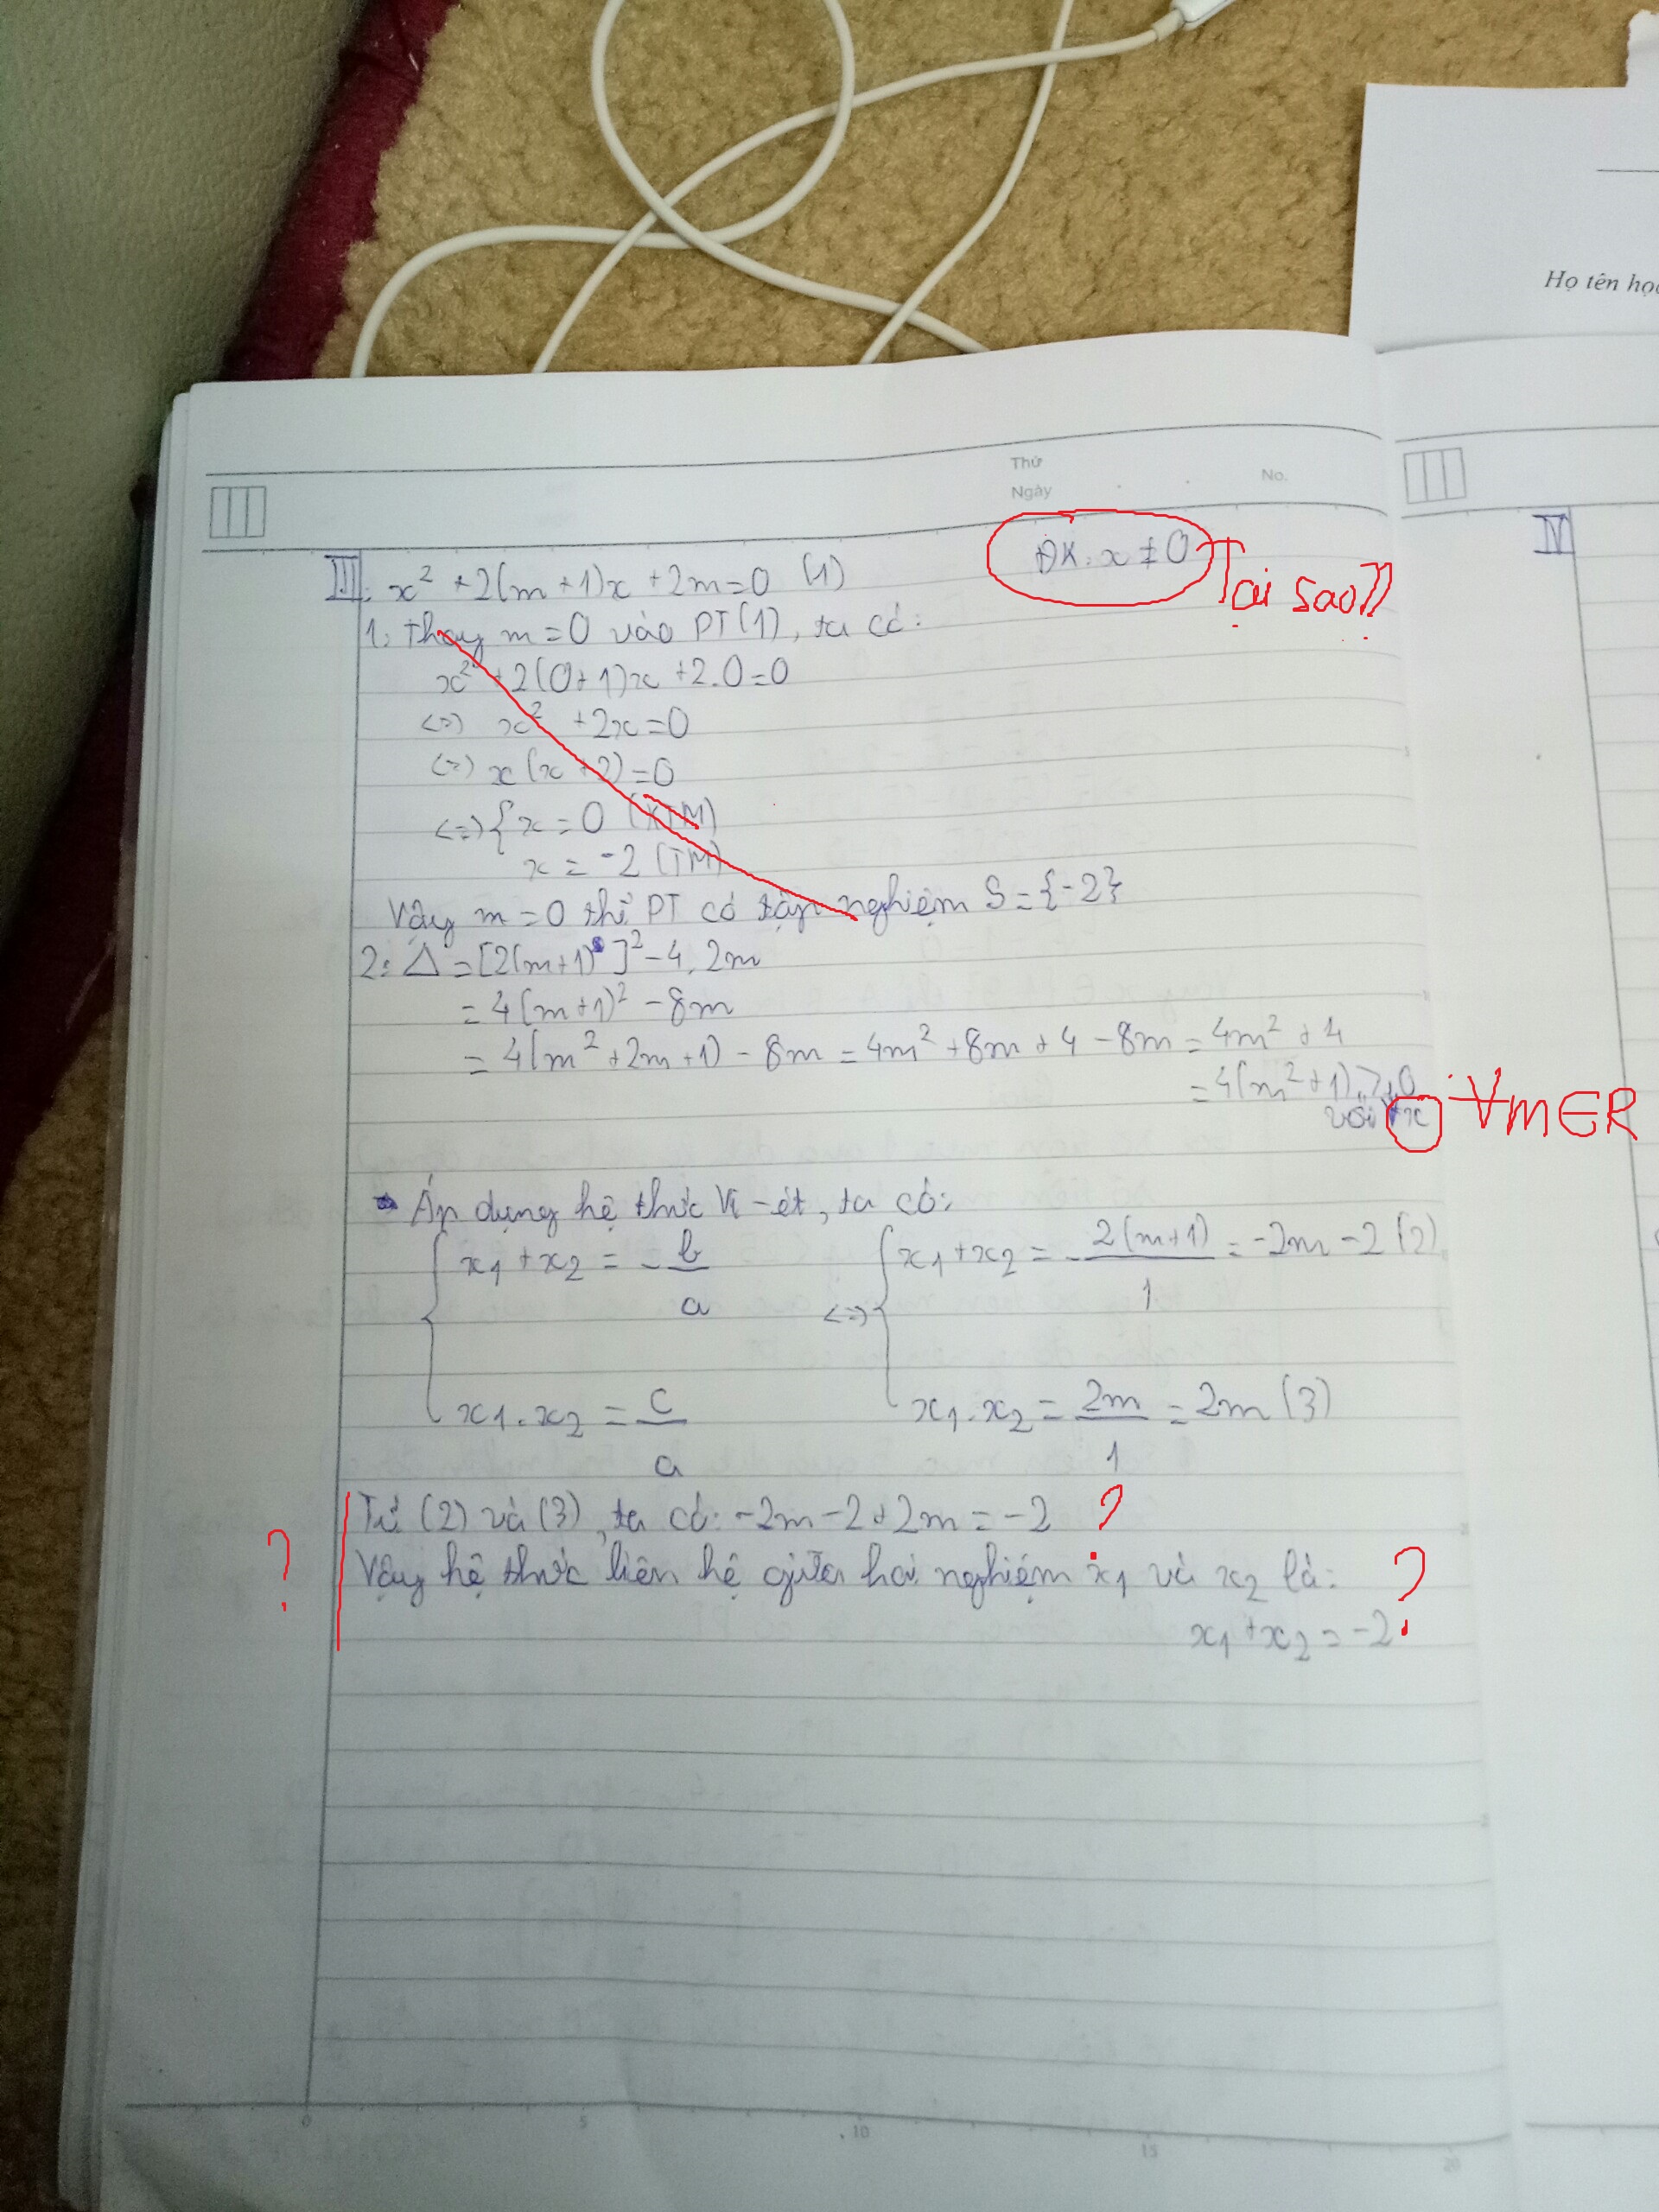 Họ tên học
Thứ
Ngày
No.
ĐK: x ≠ 0 Tại sao??
III: x² + 2(m+1)x + 2m = 0 (1)
1: Thay m = 0 vào PT(1), ta có:
x² + 2(0+1)x + 2.0 = 0
<=> x² + 2x = 0
<=> x(x+2) = 0
<=> { x = 0 (KTM)
x = -2 (TM)
Vậy m = 0 thì PT có tập nghiệm S = {-2}
2: Δ = [2(m+1)]² - 4.2m
= 4(m+1)² - 8m
= 4(m² + 2m + 1) - 8m = 4m² + 8m + 4 - 8m = 4m² + 4
= 4(m² + 1) > 0
với ∀x ∀m∈R
Áp dụng hệ thức Vi-ét, ta có:
{ x₁ + x₂ = -b/a <=> { x₁ + x₂ = -2(m+1)/1 = -2m - 2 (2)
x₁.x₂ = c/a x₁.x₂ = 2m/1 = 2m (3)
Từ (2) và (3), ta có: -2m - 2 + 2m = -2 ?
? Vậy hệ thức liên hệ giữa hai nghiệm x₁ và x₂ là: ?
x₁ + x₂ = -2
IV
0 5 10 15 20